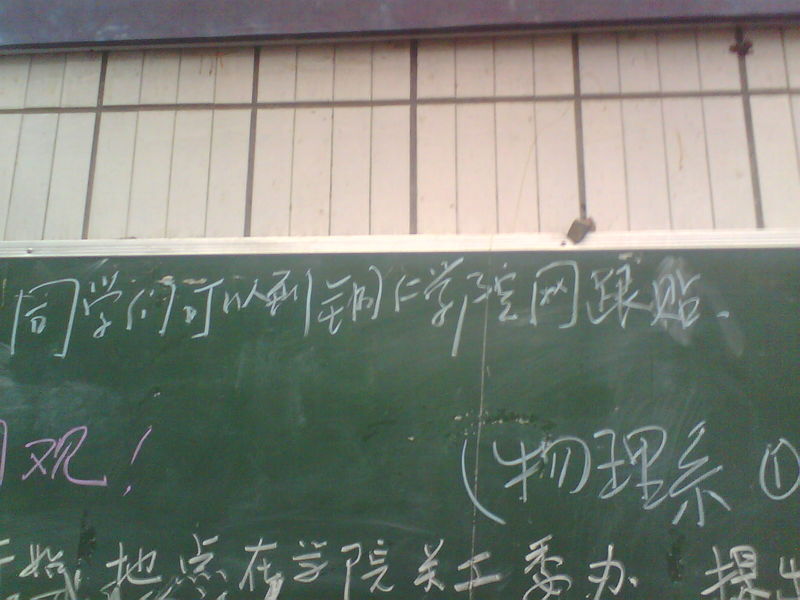 同学们可以到铜仁学院网跟贴.
观！
(物理系 ①
开始 地点在学院关工委办 提出